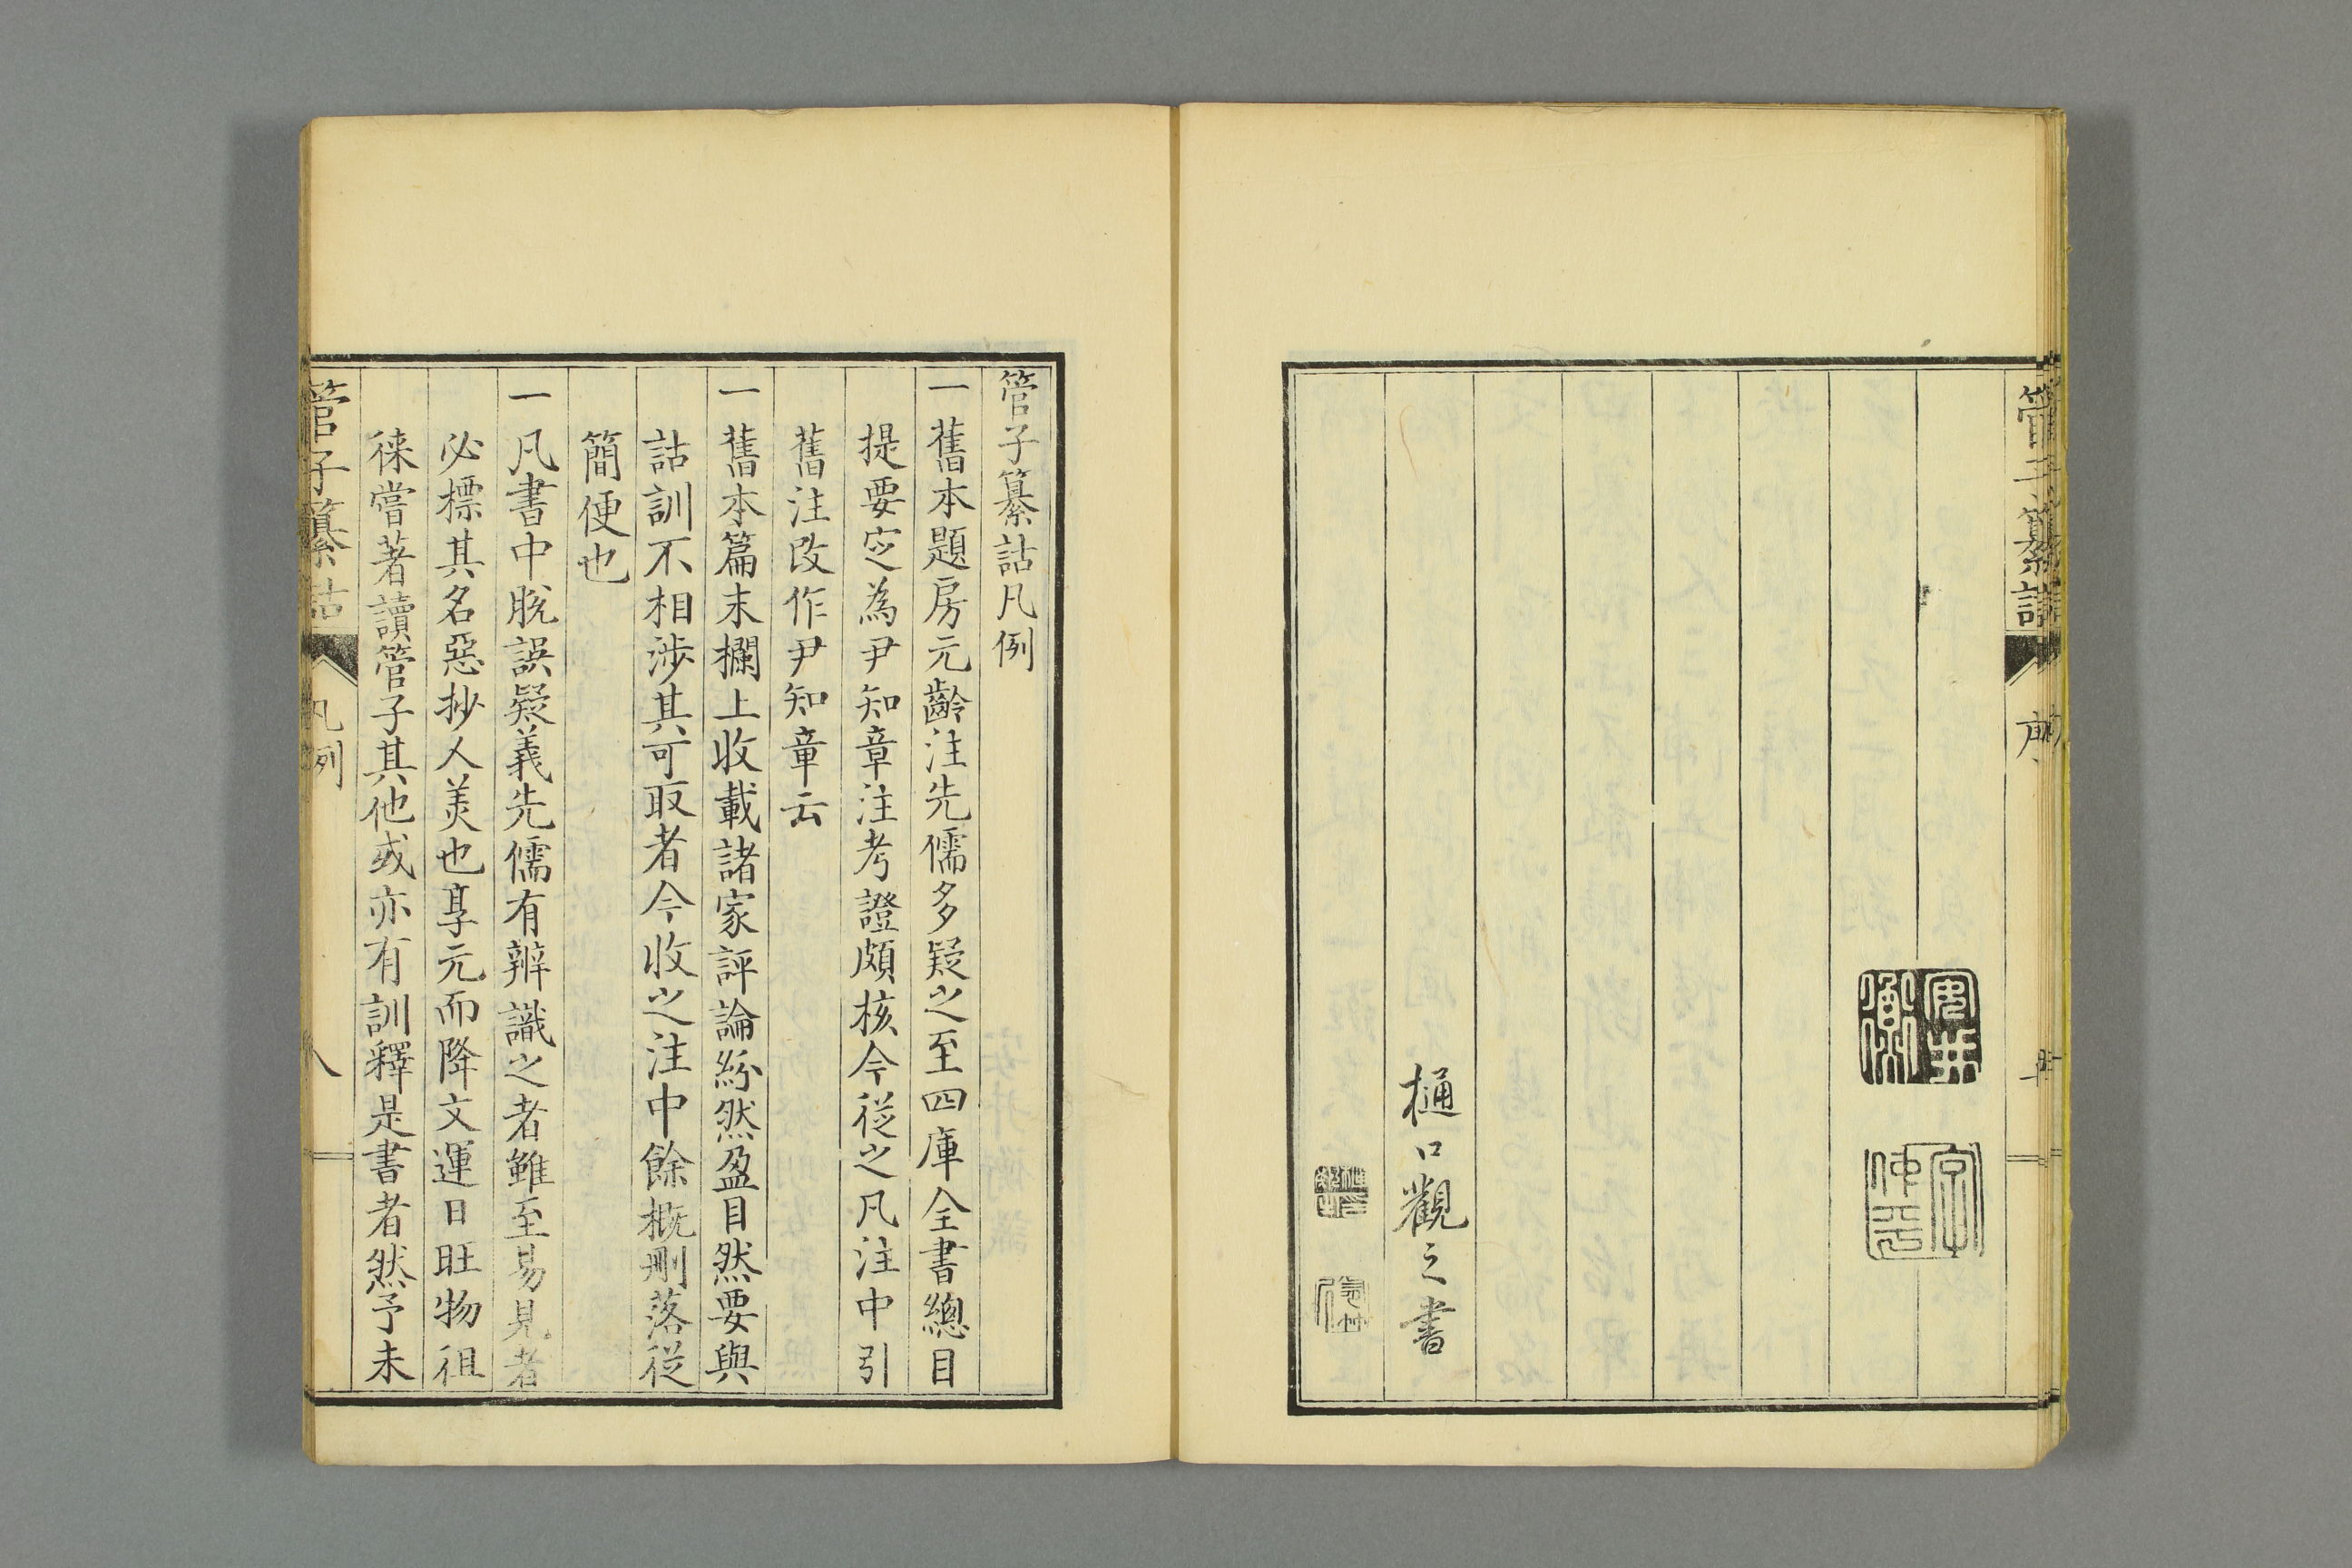 管子纂詁
序
安井衡
字仲平
樋口觀之書
管子纂詁凡例
一舊本題房元齡注先儒多疑之至四庫全書總目
提要定為尹知章注考證頗核今從之凡注中引
舊注改作尹知章云
一舊本篇末欄上收載諸家評論紛然盈目然要與
詁訓不相涉其可取者今收之注中餘概刪落從
簡便也
一凡書中脫誤疑義先儒有辨識之者雖至易見者
必標其名惡抄人美也享元而降文運日旺物徂
徠嘗著讀管子其他或亦有訓釋是書者然予未
管子纂詁
凡例